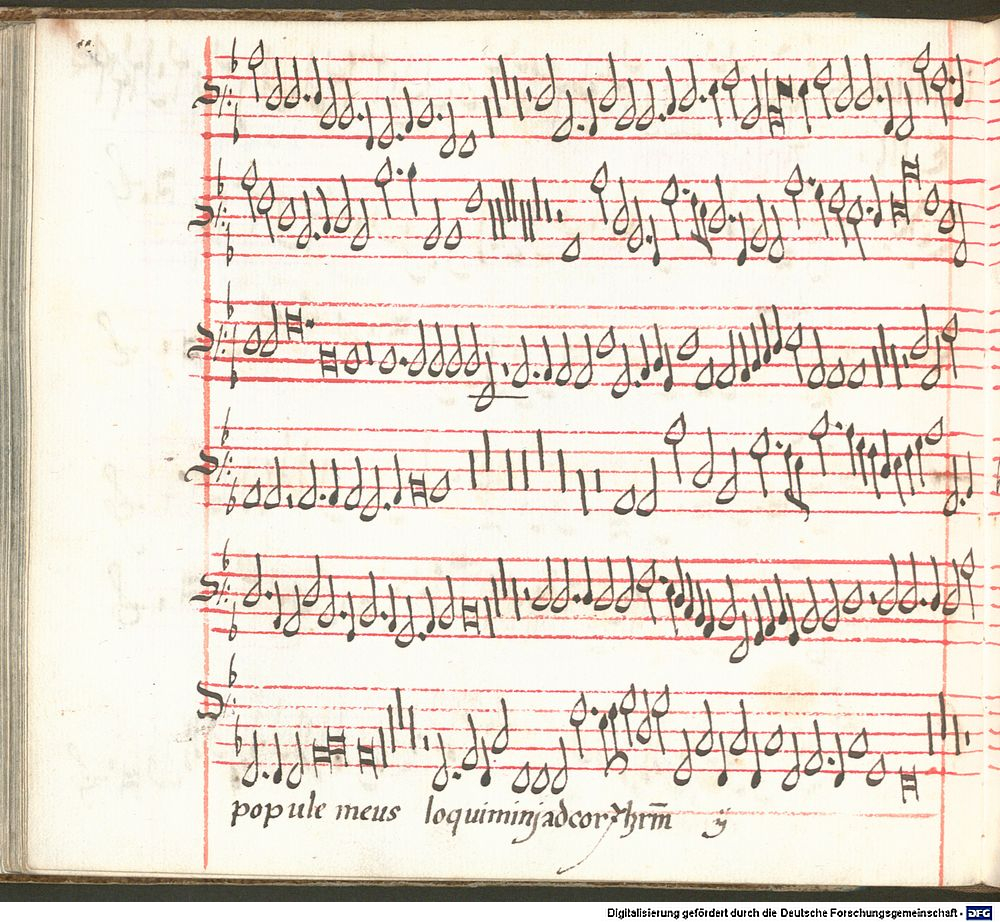 popule meus loquiminj ad cor hrm̅ ij
Digitalisierung gefördert durch die Deutsche Forschungsgemeinschaft - DFG